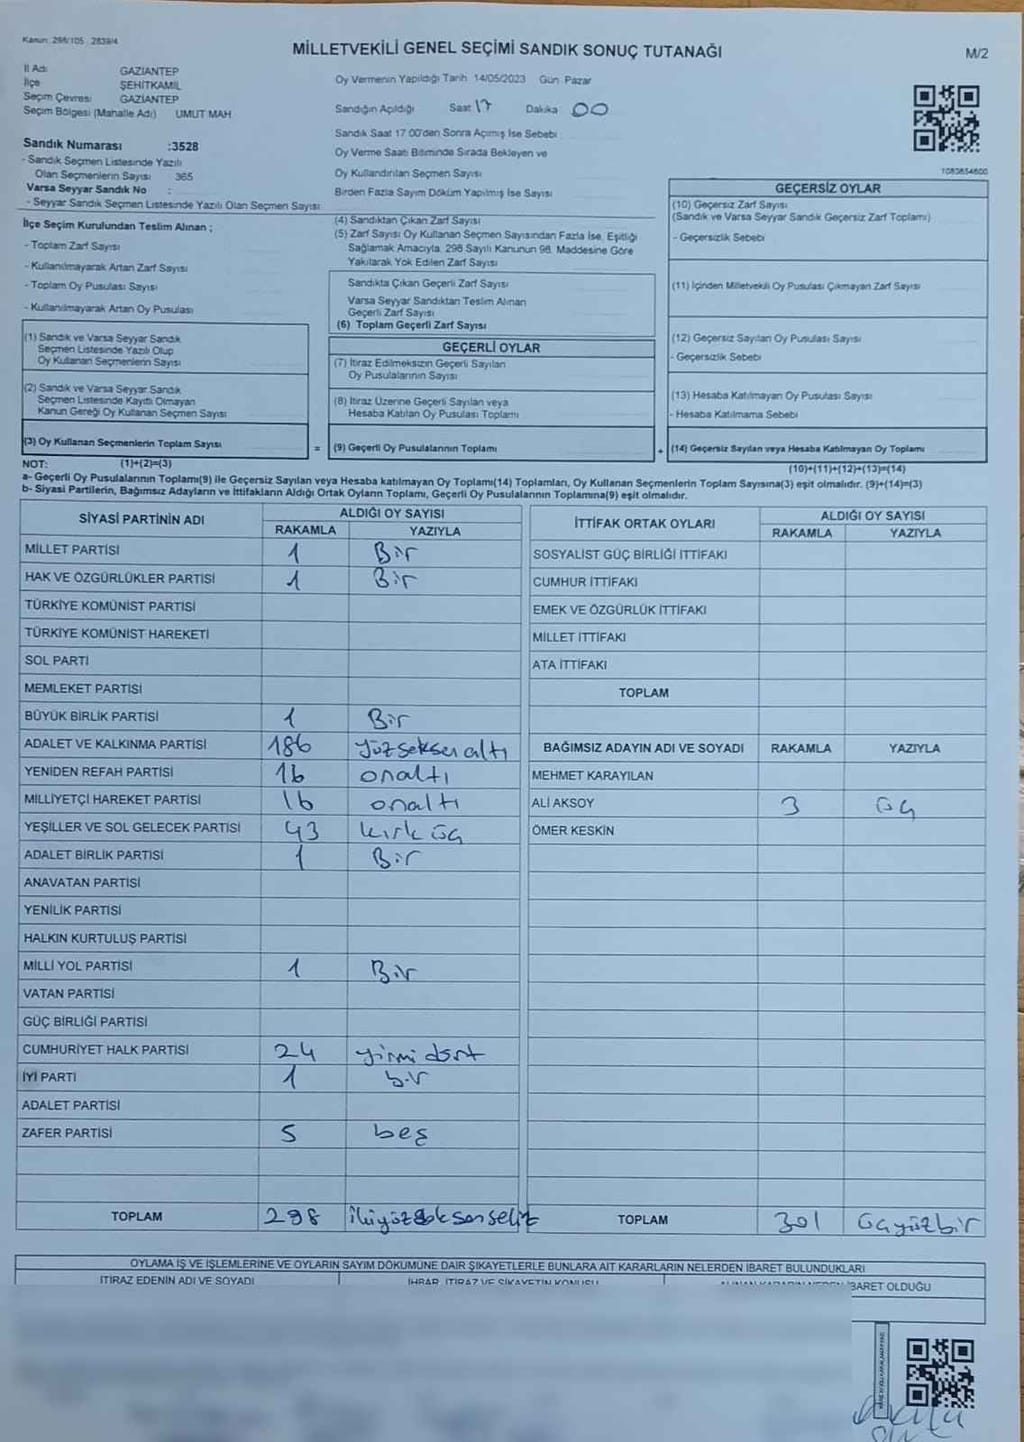 Kanun: 298/105 2839/4
MİLLETVEKİLİ GENEL SEÇİMİ SANDIK SONUÇ TUTANAĞI
M/2
İl Adı GAZİANTEP
İlçe ŞEHİTKAMİL
Seçim Çevresi GAZİANTEP
Seçim Bölgesi (Mahalle Adı) UMUT MAH
Sandık Numarası :3528
- Sandık Seçmen Listesinde Yazılı
Olan Seçmenlerin Sayısı 365
Varsa Seyyar Sandık No :
- Seyyar Sandık Seçmen Listesinde Yazılı Olan Seçmen Sayısı
İlçe Seçim Kurulundan Teslim Alınan ;
- Toplam Zarf Sayısı
- Kullanılmayarak Artan Zarf Sayısı
- Toplam Oy Pusulası Sayısı
- Kullanılmayarak Artan Oy Pusulası
(1) Sandık ve Varsa Seyyar Sandık
Seçmen Listesinde Yazılı Olup
Oy Kullanan Seçmenlerin Sayısı
(2) Sandık ve Varsa Seyyar Sandık
Seçmen Listesinde Kayıtlı Olmayan
Kanun Gereği Oy Kullanan Seçmen Sayısı
(3) Oy Kullanan Seçmenlerin Toplam Sayısı
Oy Vermenin Yapıldığı Tarih 14/05/2023 Gün Pazar
Sandığın Açıldığı Saat 17 Dakika 00
Sandık Saat 17 00'den Sonra Açılmış İse Sebebi
Oy Verme Saati Bitiminde Sırada Bekleyen ve
Oy Kullandırılan Seçmen Sayısı
Birden Fazla Sayım Döküm Yapılmış İse Sayısı
(4) Sandıktan Çıkan Zarf Sayısı
(5) Zarf Sayısı Oy Kullanan Seçmen Sayısından Fazla İse, Eşitliği
Sağlamak Amacıyla, 298 Sayılı Kanunun 98. Maddesine Göre
Yakılarak Yok Edilen Zarf Sayısı
Sandıkta Çıkan Geçerli Zarf Sayısı
Varsa Seyyar Sandıktan Teslim Alınan
Geçerli Zarf Sayısı
(6) Toplam Geçerli Zarf Sayısı
GEÇERLİ OYLAR
(7) İtiraz Edilmeksizin Geçerli Sayılan
Oy Pusulalarının Sayısı
(8) İtiraz Üzerine Geçerli Sayılan veya
Hesaba Katılan Oy Pusulası Toplamı
= (9) Geçerli Oy Pusulalarının Toplamı
1083854600
GEÇERSİZ OYLAR
(10) Geçersiz Zarf Sayısı
(Sandık ve Varsa Seyyar Sandık Geçersiz Zarf Toplamı)
- Geçersizlik Sebebi
(11) İçinden Milletvekili Oy Pusulası Çıkmayan Zarf Sayısı
(12) Geçersiz Sayılan Oy Pusulası Sayısı
- Geçersizlik Sebebi
(13) Hesaba Katılmayan Oy Pusulası Sayısı
- Hesaba Katılmama Sebebi
+ (14) Geçersiz Sayılan veya Hesaba Katılmayan Oy Toplamı
NOT: (1)+(2)=(3)
(10)+(11)+(12)+(13)=(14)
a- Geçerli Oy Pusulalarının Toplamı(9) ile Geçersiz Sayılan veya Hesaba katılmayan Oy Toplamı(14) Toplamları, Oy Kullanan Seçmenlerin Toplam Sayısına(3) eşit olmalıdır. (9)+(14)=(3)
b- Siyasi Partilerin, Bağımsız Adayların ve İttifakların Aldığı Ortak Oyların Toplamı, Geçerli Oy Pusulalarının Toplamına(9) eşit olmalıdır.
SİYASİ PARTİNİN ADI ALDIĞI OY SAYISI
RAKAMLA YAZIYLA
MİLLET PARTİSİ 1 Bir
HAK VE ÖZGÜRLÜKLER PARTİSİ 1 Bir
TÜRKİYE KOMÜNİST PARTİSİ
TÜRKİYE KOMÜNİST HAREKETİ
SOL PARTİ
MEMLEKET PARTİSİ
BÜYÜK BİRLİK PARTİSİ 1 Bir
ADALET VE KALKINMA PARTİSİ 186 yüzseksenaltı
YENİDEN REFAH PARTİSİ 16 onaltı
MİLLİYETÇİ HAREKET PARTİSİ 16 onaltı
YEŞİLLER VE SOL GELECEK PARTİSİ 43 kırk üç
ADALET BİRLİK PARTİSİ 1 Bir
ANAVATAN PARTİSİ
YENİLİK PARTİSİ
HALKIN KURTULUŞ PARTİSİ
MİLLİ YOL PARTİSİ 1 Bir
VATAN PARTİSİ
GÜÇ BİRLİĞİ PARTİSİ
CUMHURİYET HALK PARTİSİ 24 yirmi dört
İYİ PARTİ 1 bir
ADALET PARTİSİ
ZAFER PARTİSİ 5 beş
TOPLAM 298
İTTİFAK ORTAK OYLARI ALDIĞI OY SAYISI
RAKAMLA YAZIYLA
SOSYALİST GÜÇ BİRLİĞİ İTTİFAKI
CUMHUR İTTİFAKI
EMEK VE ÖZGÜRLÜK İTTİFAKI
MİLLET İTTİFAKI
ATA İTTİFAKI
TOPLAM
BAĞIMSIZ ADAYIN ADI VE SOYADI RAKAMLA YAZIYLA
MEHMET KARAYILAN
ALİ AKSOY 3 üç
ÖMER KESKİN
TOPLAM 301 üçyüzbir
OYLAMA İŞ VE İŞLEMLERİNE VE OYLARIN SAYIM DÖKÜMÜNE DAİR ŞİKAYETLERLE BUNLARA AİT KARARLARIN NELERDEN İBARET BULUNDUKLARI
İTİRAZ EDENİN ADI VE SOYADI İHBAR, İTİRAZ VE ŞİKAYETİN KONUSU ALINAN KARARIN NEDEN İBARET OLDUĞU